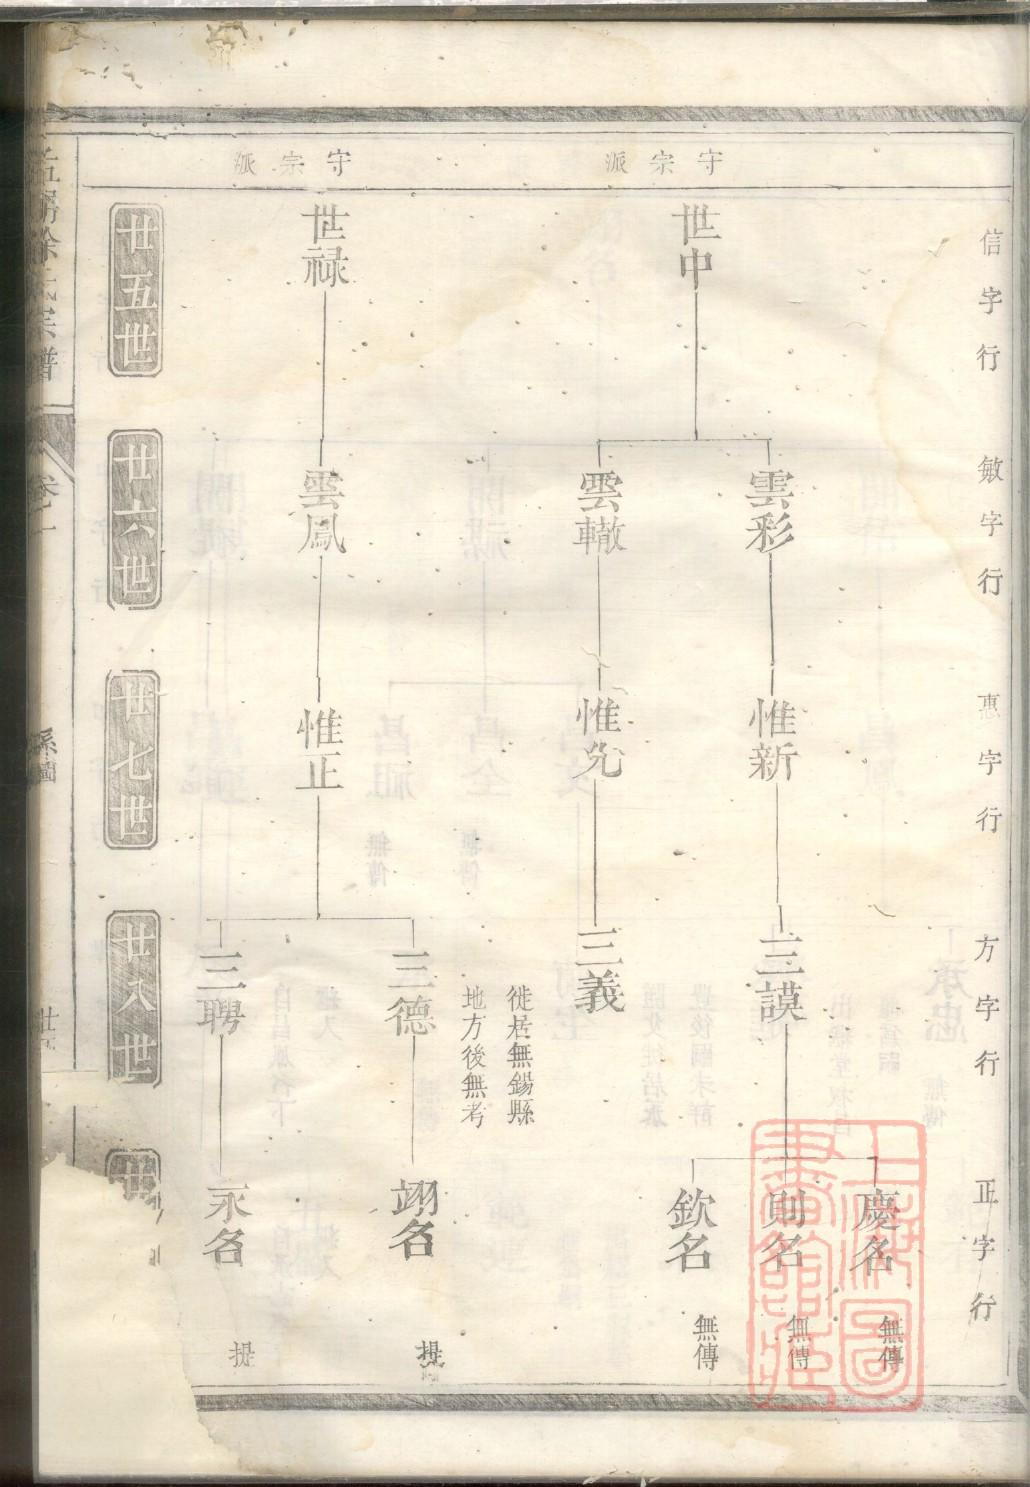 守宗派
守宗派
信字行
敏字行
惠字行
方字行
正字行
世中
世禄
廿五世
雲彩
雲轍
雲鳳
廿六世
惟新
惟允
惟正
廿七世
三謨
三義
徙居無錫縣
地方後無考
三德
三聘
廿八世
慶名
無傳
則名
無傳
欽名
無傳
翊名
提
永名
提
徐氏宗譜
卷二
系圖
上海圖書館藏